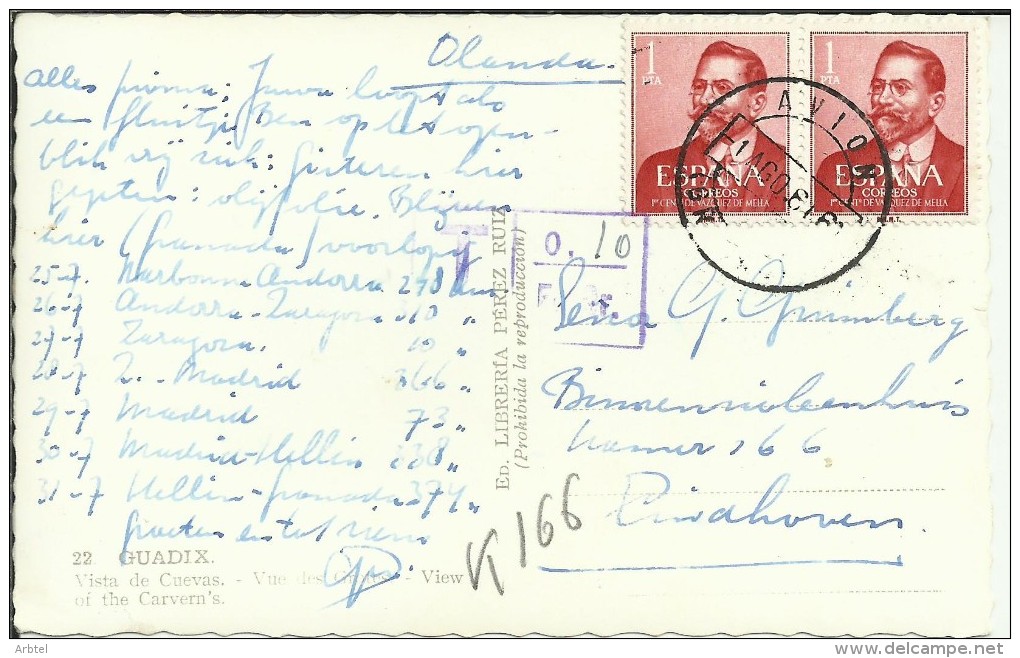 Olanda.
alles prima: Java loopt als
een fluitje. Ben op het ogen-
blik vrij ziek: gisteren hier
gegeten: olijfolie. Blijven
hier (Granada) voorlopig
25-7 Narbonne Andorra 278 km
26-7 Andorra-Zaragoza 310 "
27-7 Zaragoza. 10 "
28-7 Z. - Madrid 366 "
29-7 Madrid 73 "
30-7 Madrid-Hellin 338 "
31-7 Hellin-Granada 374 "
groeten en tot ziens
22 GUADIX.
Vista de Cuevas. - Vue des - View
of the Carvern's.
ED. LIBRERÍA PÉREZ RUIZ
(Prohibida la reproducción)
T
0. 10
1 PTA
ESPAÑA
CORREOS
1er CENTº DE VAZQUEZ DE MELLA
1 PTA
ESPAÑA
CORREOS
1er CENTº DE VAZQUEZ DE MELLA
F.N.M.T.
AVION
1 AGO 61
G. Grünberg
Binnenziekenhuis
kamer 166
Eindhoven.
K 166
Arbtel
delcampe.net